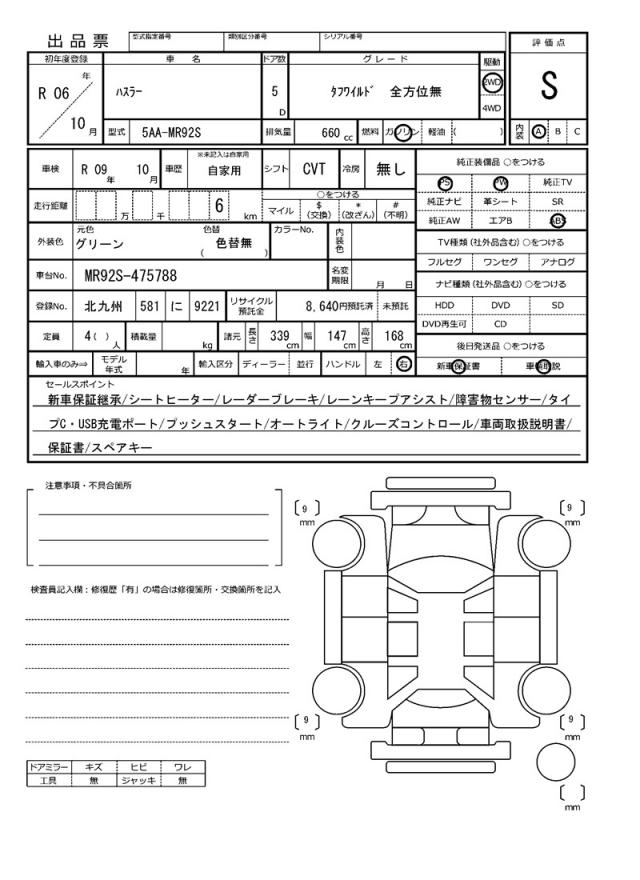 出品票 型式指定番号 類別区分番号 シリアル番号
初年度登録 車名 ドア数 グレード 駆動 評価点
R 06 年 10 月 ハスラー 5 D タフワイルド 全方位無 2WD 4WD S
型式 5AA-MR92S 排気量 660 cc 燃料 ガソリン 軽油 ( ) 内装 A B C
車検 R 09 年 10 月 車歴 ※未記入は自家用 自家用 シフト CVT 冷房 無し 純正装備品 ○をつける
PS PW 純正TV
走行距離 万 千 6 km ○をつける 純正ナビ 革シート SR
マイル $ (交換) * (改ざん) # (不明) 純正AW エアB ABS
外装色 元色 グリーン 色替 色替無 ( ) カラーNo. 内装色 TV種類(社外品含む)○をつける
フルセグ ワンセグ アナログ
車台No. MR92S-475788 名変期限 月 日 ナビ種類(社外品含む)○をつける
登録No. 北九州 581 に 9221 リサイクル預託金 8,640円預託済 未預託 HDD DVD SD
DVD再生可 CD
定員 4( ) 人 積載量 kg 諸元 長さ 339 cm 幅 147 cm 高さ 168 cm 後日発送品 ○をつける
輸入車のみ⇒ モデル年式 年 輸入区分 ディーラー 並行 ハンドル 左 右 新車保証書 車輌取説
セールスポイント
新車保証継承/シートヒーター/レーダーブレーキ/レーンキープアシスト/障害物センサー/タイ
プC・USB充電ポート/プッシュスタート/オートライト/クルーズコントロール/車両取扱説明書/
保証書/スペアキー
注意事項・不具合箇所
9 mm 9 mm
検査員記入欄:修復歴「有」の場合は修復箇所・交換箇所を記入
9 mm 9 mm
ドアミラー キズ ヒビ ワレ
工具 無 ジャッキ 無
mm